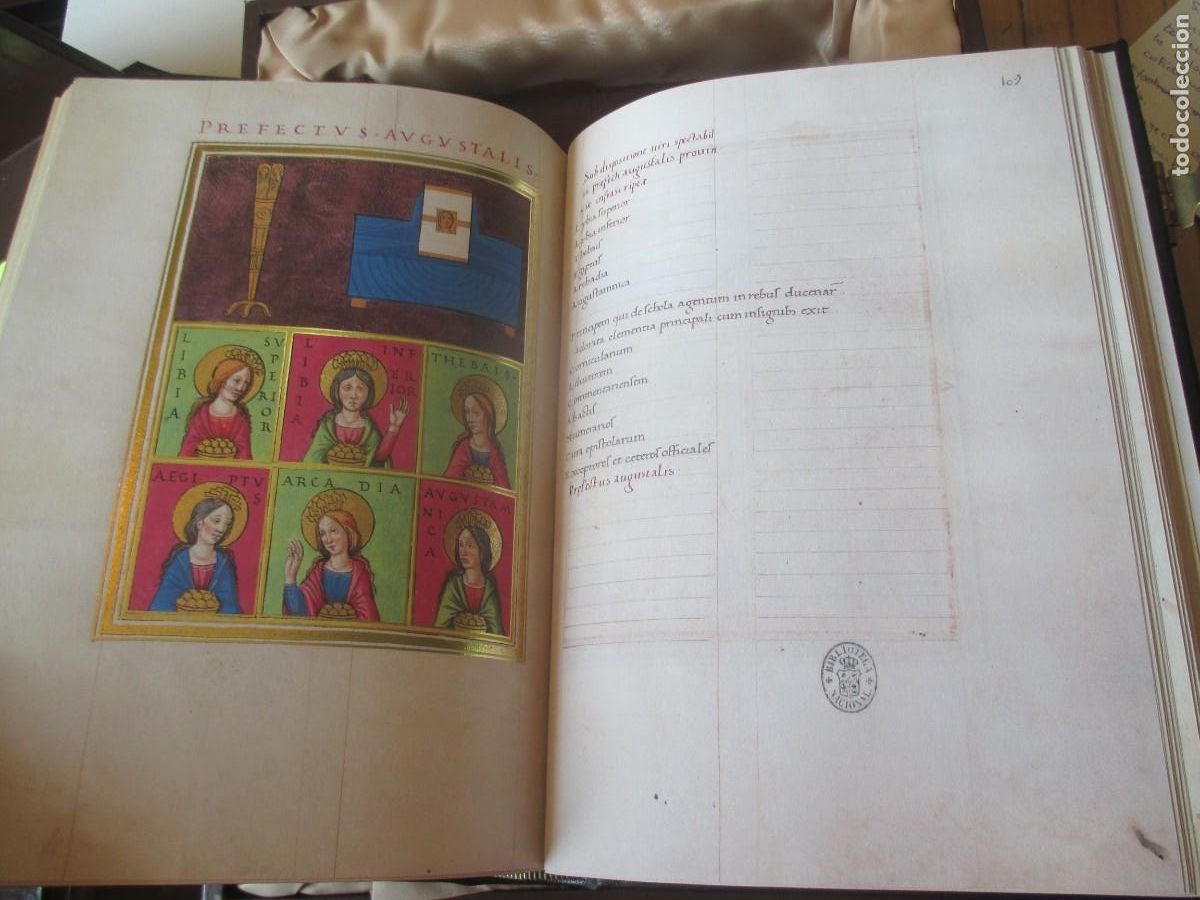 PREFECTVS · AVGVSTALIS ·
LIBIA SVPERIOR
LIBIA INFERIOR
THEBAIS ·
AEGIPTVS
ARCADIA
AVGVSTAMNICA
109
Sub dispositione uiri spectabil
augustalis prouin
infrascriptae
Lybia superior
Lybia inferior
Thebais
Egyptus
Archadia
Augustamnica
Principem qui de schola agentum in rebus ducenar̄
adorata clementia principali cum insignib; exit
Cornicularium
Adiutorem
Commentariensem
Ab actis
Numerarios
Cura epistolarum
Exceptores et ceteros officiales
Prefectus augustalis
BIBLIOTECA
NACIONAL
todocoleccion